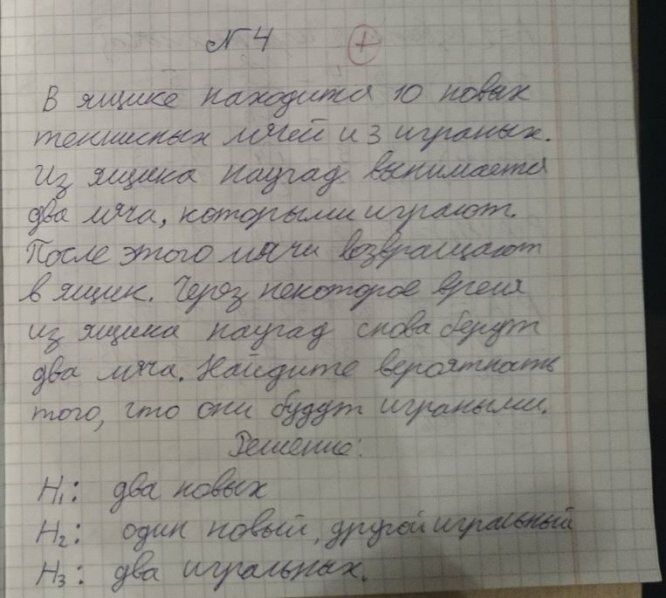 №4 +
В ящике находится 10 новых
теннисных мячей и 3 играных.
Из ящика наугад вынимается
два мяча, которыми играют.
После этого мячи возвращают
в ящик. Через некоторое время
из ящика наугад снова берут
два мяча. Найдите вероятность
того, что они будут играными.
Решение:
H₁: два новых
H₂: один новый, другой игральный
H₃: два игральных.